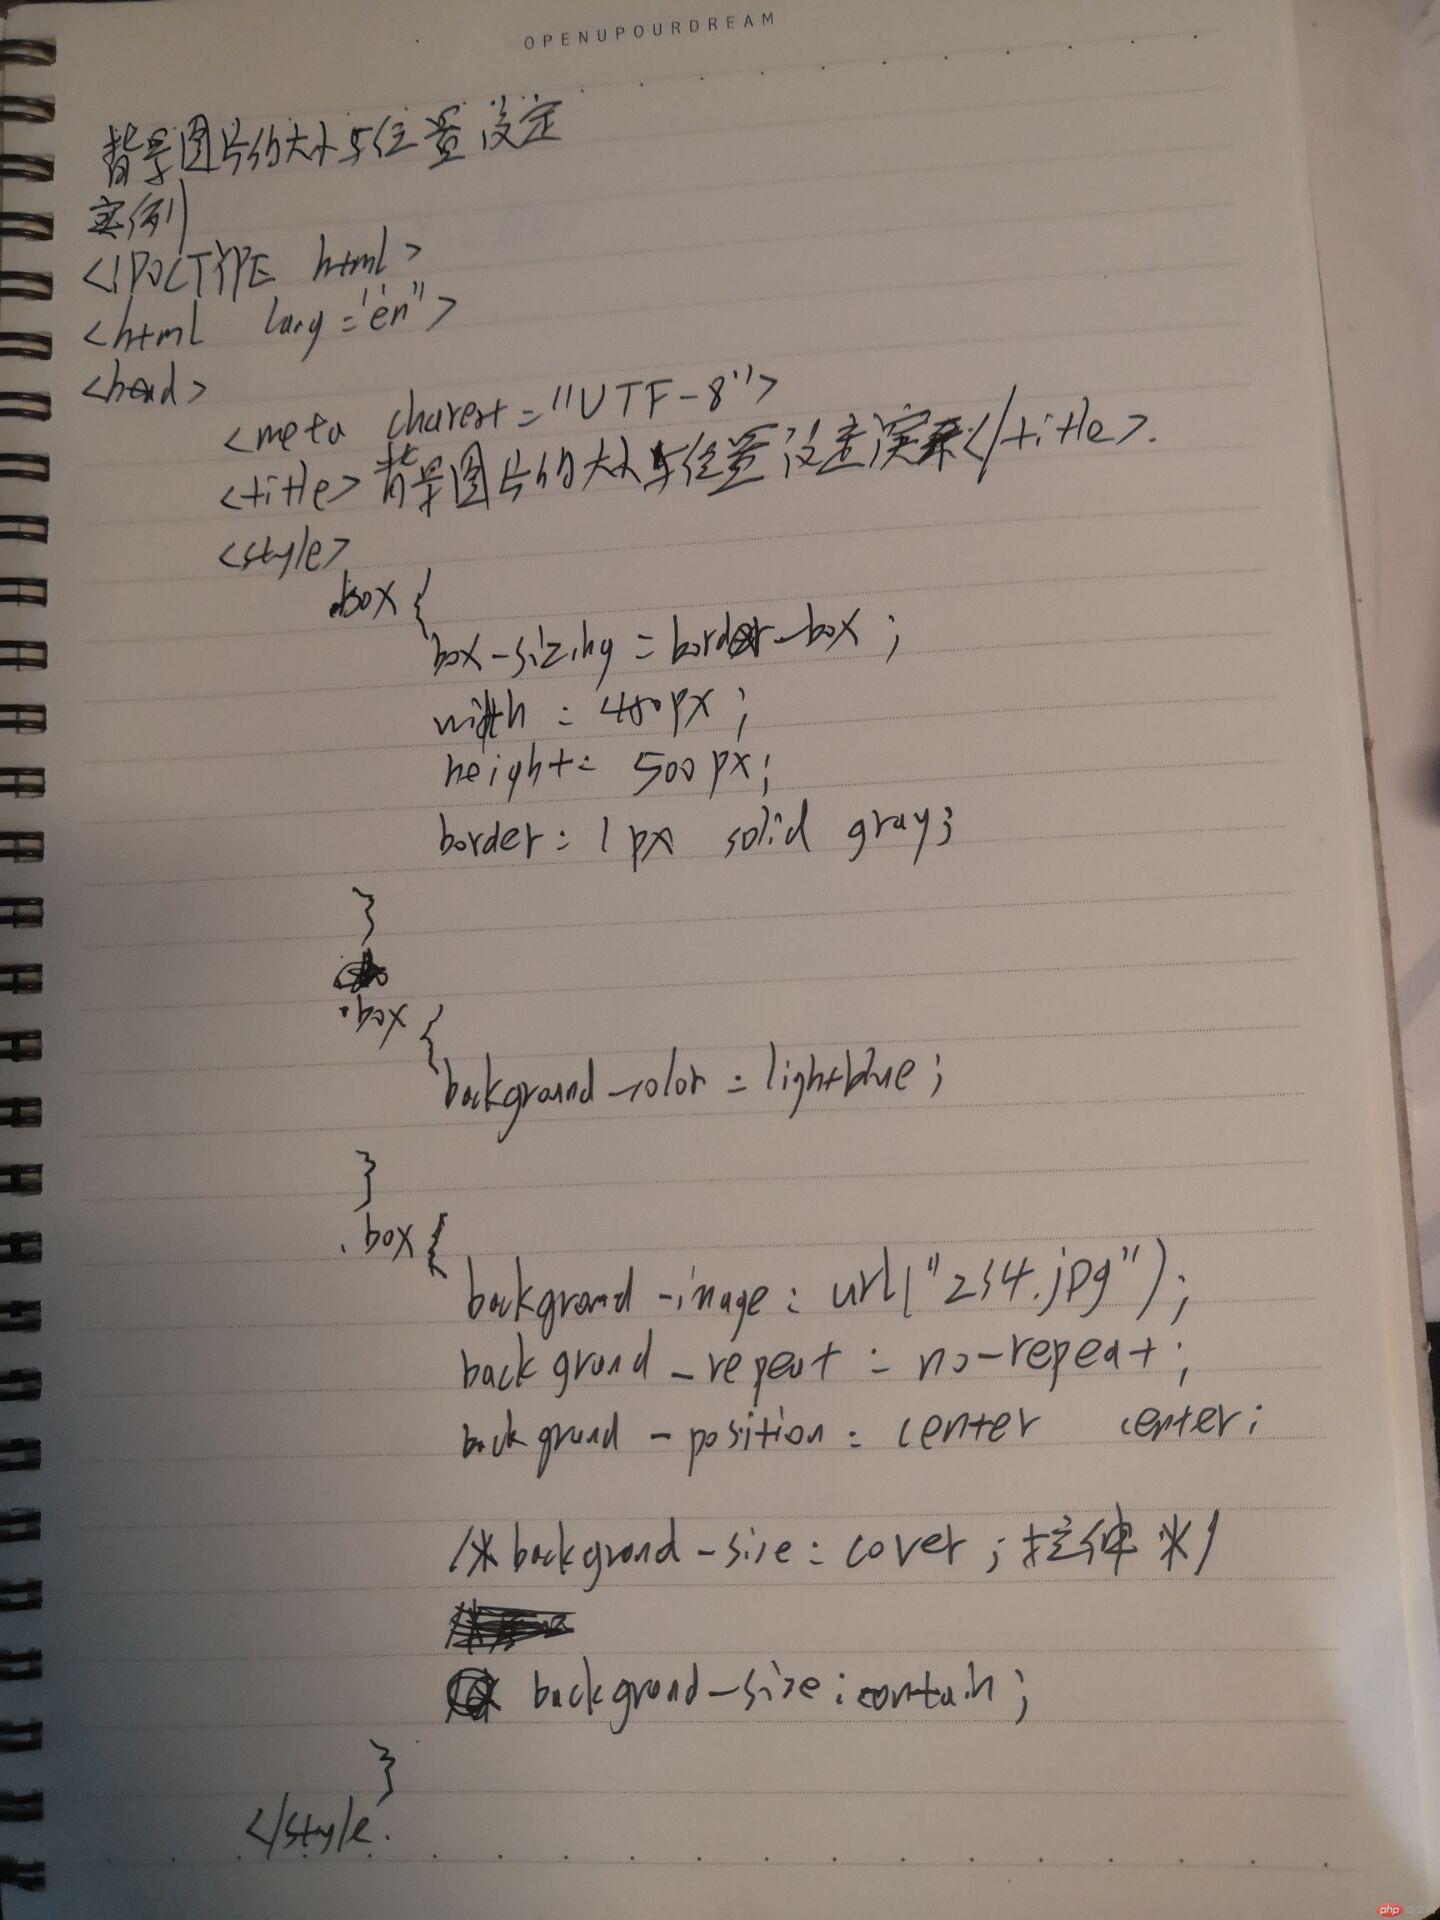 OPENUPOURDREAM
背景图片的大小与位置设定
实例
<!DOCTYPE html>
<html lang="en">
<head>
<meta charest="UTF-8">
<title>背景图片的大小与位置设定演示</title>.
<style>
.box {
box-sizing: border-box;
width: 450px;
height: 500px;
border: 1px solid gray;
}
.box {
background-color: lightblue;
}
.box {
background-image: url("234.jpg");
background-repeat: no-repeat;
background-position: center center;
/*background-size: cover; 拉伸*/
background-size: contain;
}
</style.
php 中文网